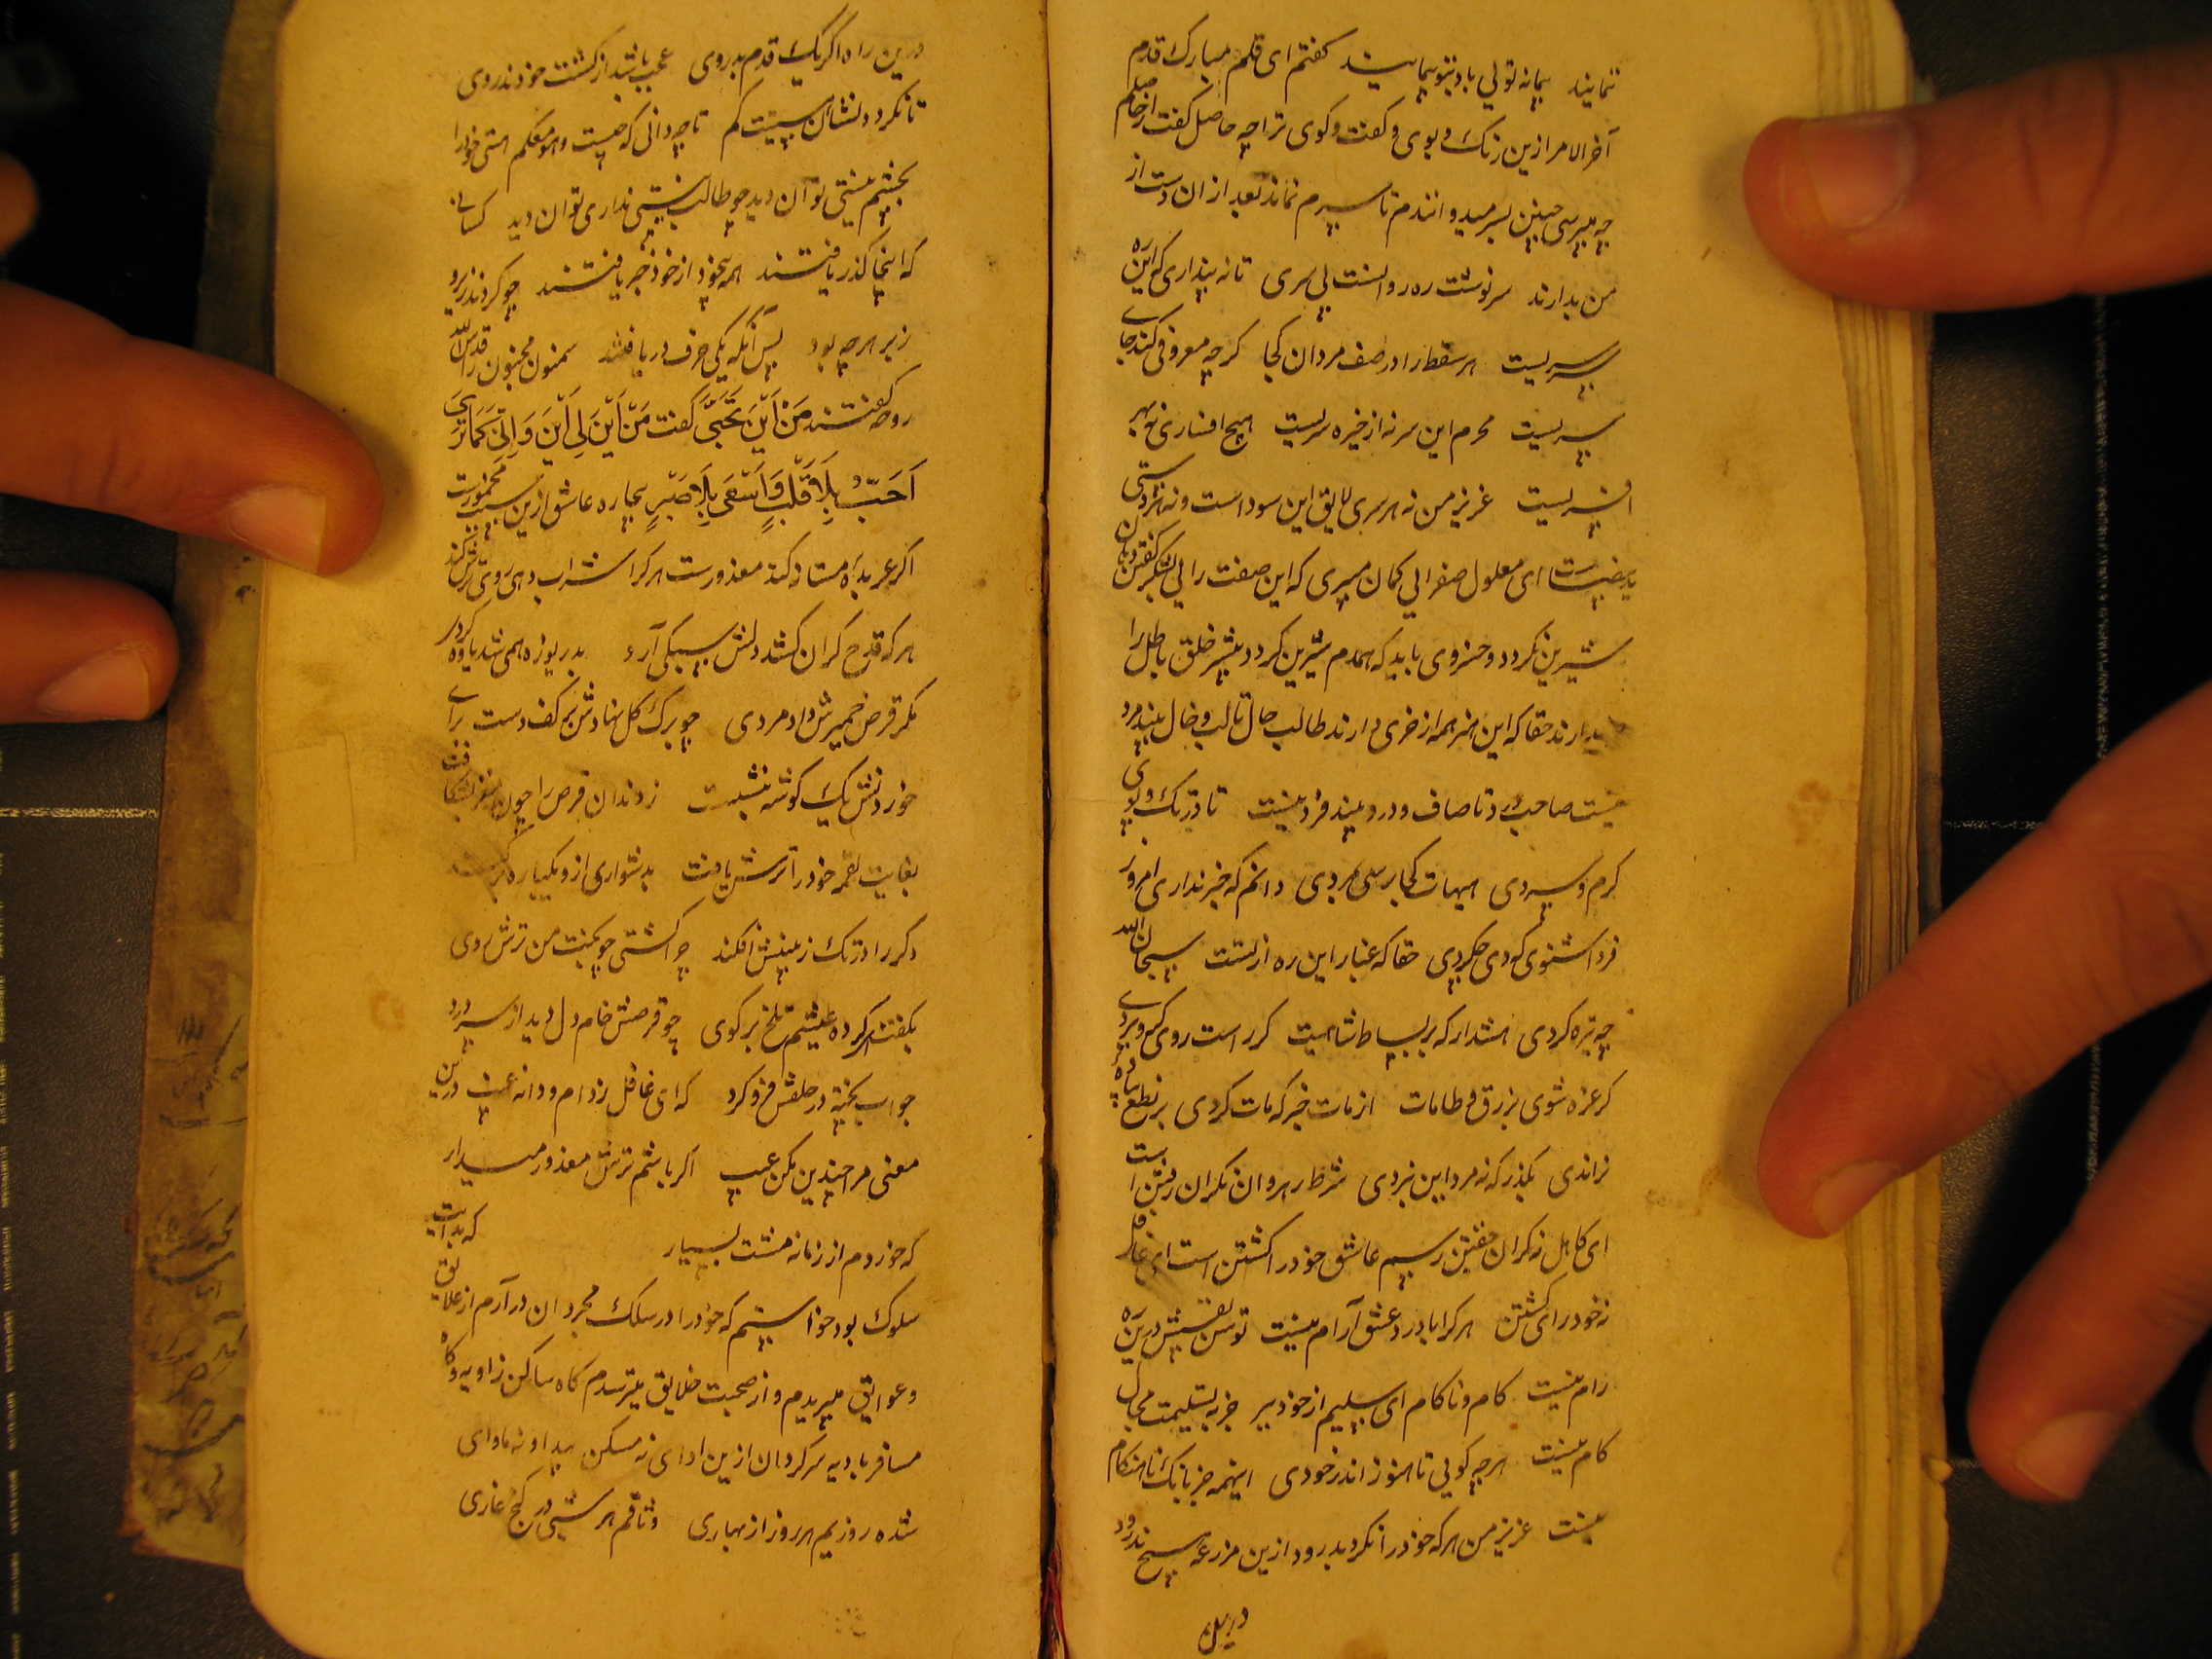 نمایند پیمانه تولی باد بتو پیمایند کفتم ای قلم مبارک قدم
آخر الامر ازین رنک و بوی و کفت و کوی ترا چه حاصل کفت از حاصلم
چه میپرسی چنین بسر میدوانندم تا سرم نماند بعد ازان دست از
من بدارند سرنوشت ره روانست بی سری تا نه پنداری که این ره
سرسریست هر سقط را در صف مردان کجا کرچه معروفی کند جای
سریست محرم این سر نه از خیره سریست هیچ افساری نه بهر
افسریست عزیز من نه هر سری لایق این سوداست و نه هر دستی
ید بیضاست ای معلول صفرایی کمان میبری که این صفت را بی شکر کفتن دهان
شیرین نکردد و خسروی باید که همدم شیرین کردد بیشتر خلق باطل را
میدارند حقا که این هنر همه از خری دارند طالب حال تا لب و خال بیند مرد
نیست صاحب درد تا صاف و درد بیند فرد نیست تا در تک و پوی
کرم و سردی هیهات کجا رسی بمردی دانم که خبر نداری امروز
فردا شنوی که دی چکردی حقا که غبار این ره از تست سبحان الله
چه تیره کردی هشدار که بر بساط شاهیت کر راست روی کهر و بردی
کر غره شوی بزرق و طامات از مات خبر که مات کردی بر نطع پیاده
نراندی بکذر که نه مرد این نبردی شرط رهروان نکران رفتن است
ای کاهل نه کران خفتن رسم عاشق خود را کشتن است ای غافل
نه خودرای کشتن هر کرا با درد عشق آرام نیست توسن نفسش درین ره
رام نیست کام و ناکام ای سلیم از خود ببر جز به تسلیمت مجال
کام نیست هرچه کویی تا هنوز اندر خودی اینهمه جز بانک ناهنکام
نیست عزیز من هر که خود را نکرد بدرود ازین مزرعه هیچ ندرود
درین
درین راه اکر یک قدم بدروی عجب باشد از کشت خود ندروی
تا نکردد نشان هستیت کم تا چه دانی که چیست و هو معکم هستی خود را
بچشم نیستی توان دید چو طالب نیستی نداری توان دید کسانی
که اینجا کذر یافتند همه بیخود از خود خبر یافتند چو کردند زیر و
زبر هرچه بود پس آنکه یکی حرف دریافتند سمنون مجنون را قدس الله
روحه کفتند مَنْ اَیْنَ تَحَیَّ کفت مَنْ اَیْنَ لِی اَیْنَ وَاِنّی کَمَا تَرَی
اَحَبّ بِلَا قَلْبٍ وَاَسْعَی بِلَا صَبْرٍ بیچاره عاشق ازین سبب مخمورست
اکر عربده مستانه کند معذورست هر کرا شراب دهی روی ترش کند
هر که قدح کران کشد دلش سبکی آرد بدریوزه همی شد یاوه کردی
مکر قرص خمیرش داد مردی چو برک کل نهادش بر کف دست برای
خوردنش یک کوشه بنشست ز دندان قرص را چون مغز بشکافت
بغایت لقمه خود را ترش یافت بدشواری ازو یکپاره برکند
دکر را در تک زمینش افکند چرا کشتی چو بختیت من ترش روی
بکفت ای کرده عیشم تلخ برکوی چو قرصش خام دل دید از سر درد
جواب پخته در حلقش فرو کرد که ای غافل ز دام و دانه غیب درین
معنی مرا چندین مکن عیب اکر باشم ترش معذور میدار
که خوردم از زمانه مشت بسیار که بدایت
سلوک بود خواستم که خود را در سلک مجردان در آرم از علایق
و عوایق میبریدم و از صحبت خلایق میترسیدم کاه ساکن زاویه و کاه
مسافر بادیه سرکردان ازین ادای نه مسکن پیدا و نه ماوای
شده روزیم هر روز از بهاری وثاقم هر شبی در کنج غاری